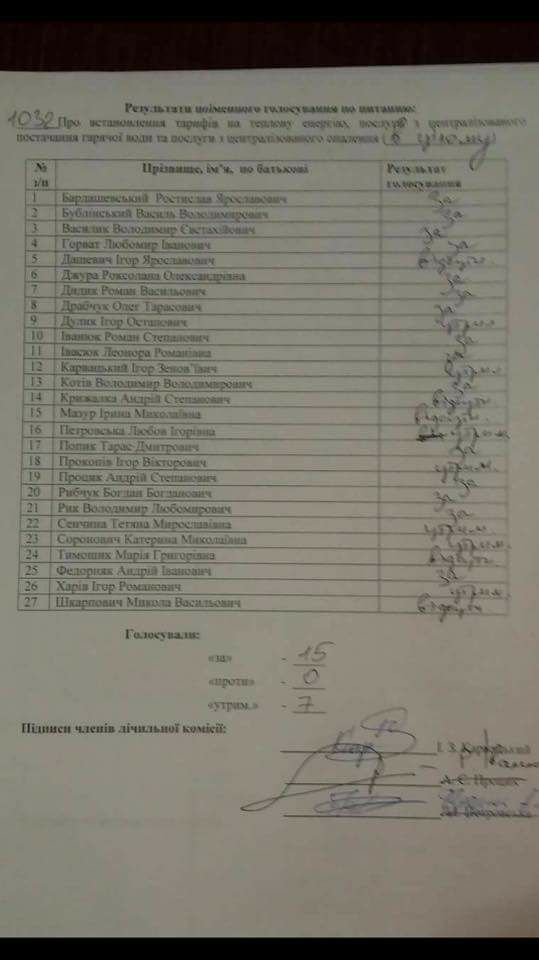 Результати поіменного голосування по питанню:
1032 Про встановлення тарифів на теплову енергію, послуги з централізованого
постачання гарячої води та послуги з централізованого опалення (в цілому)
№ з/п Прізвище, ім'я, по батькові Результат голосування
1 Бардашевський Ростислав Ярославович за
2 Бублінський Василь Володимирович за
3 Василик Володимир Євстахійович за
4 Горват Любомир Іванович за
5 Дашевич Ігор Ярославович відсутн.
6 Джура Роксолана Олександрівна за
7 Дидик Роман Васильович за
8 Драбчук Олег Тарасович за
9 Дулик Ігор Остапович утрим.
10 Іванюк Роман Степанович за
11 Івасюк Леонора Романівна за
12 Карвацький Ігор Зенов'ївич утрим.
13 Котів Володимир Володимирович за
14 Крижалка Андрій Степанович відсутн
15 Мазур Ірина Миколаївна відсутн.
16 Петровська Любов Ігорівна утрим.
17 Попик Тарас Дмитрович за
18 Прокопів Ігор Вікторович утрим.
19 Процик Андрій Степанович за
20 Рибчук Богдан Богданович за
21 Рик Володимир Любомирович за
22 Сенчина Тетяна Мирославівна утрим.
23 Соронович Катерина Миколаївна утрим.
24 Тимощик Марія Григорівна відсутн.
25 Федорняк Андрій Іванович за
26 Харів Ігор Романович утрим.
27 Шкарпович Микола Васильович відсутн
Голосували:
«за» - 15
«проти» - 0
«утрим.» - 7
Підписи членів лічильної комісії:
І. З. Карвацький
А. С. Процик